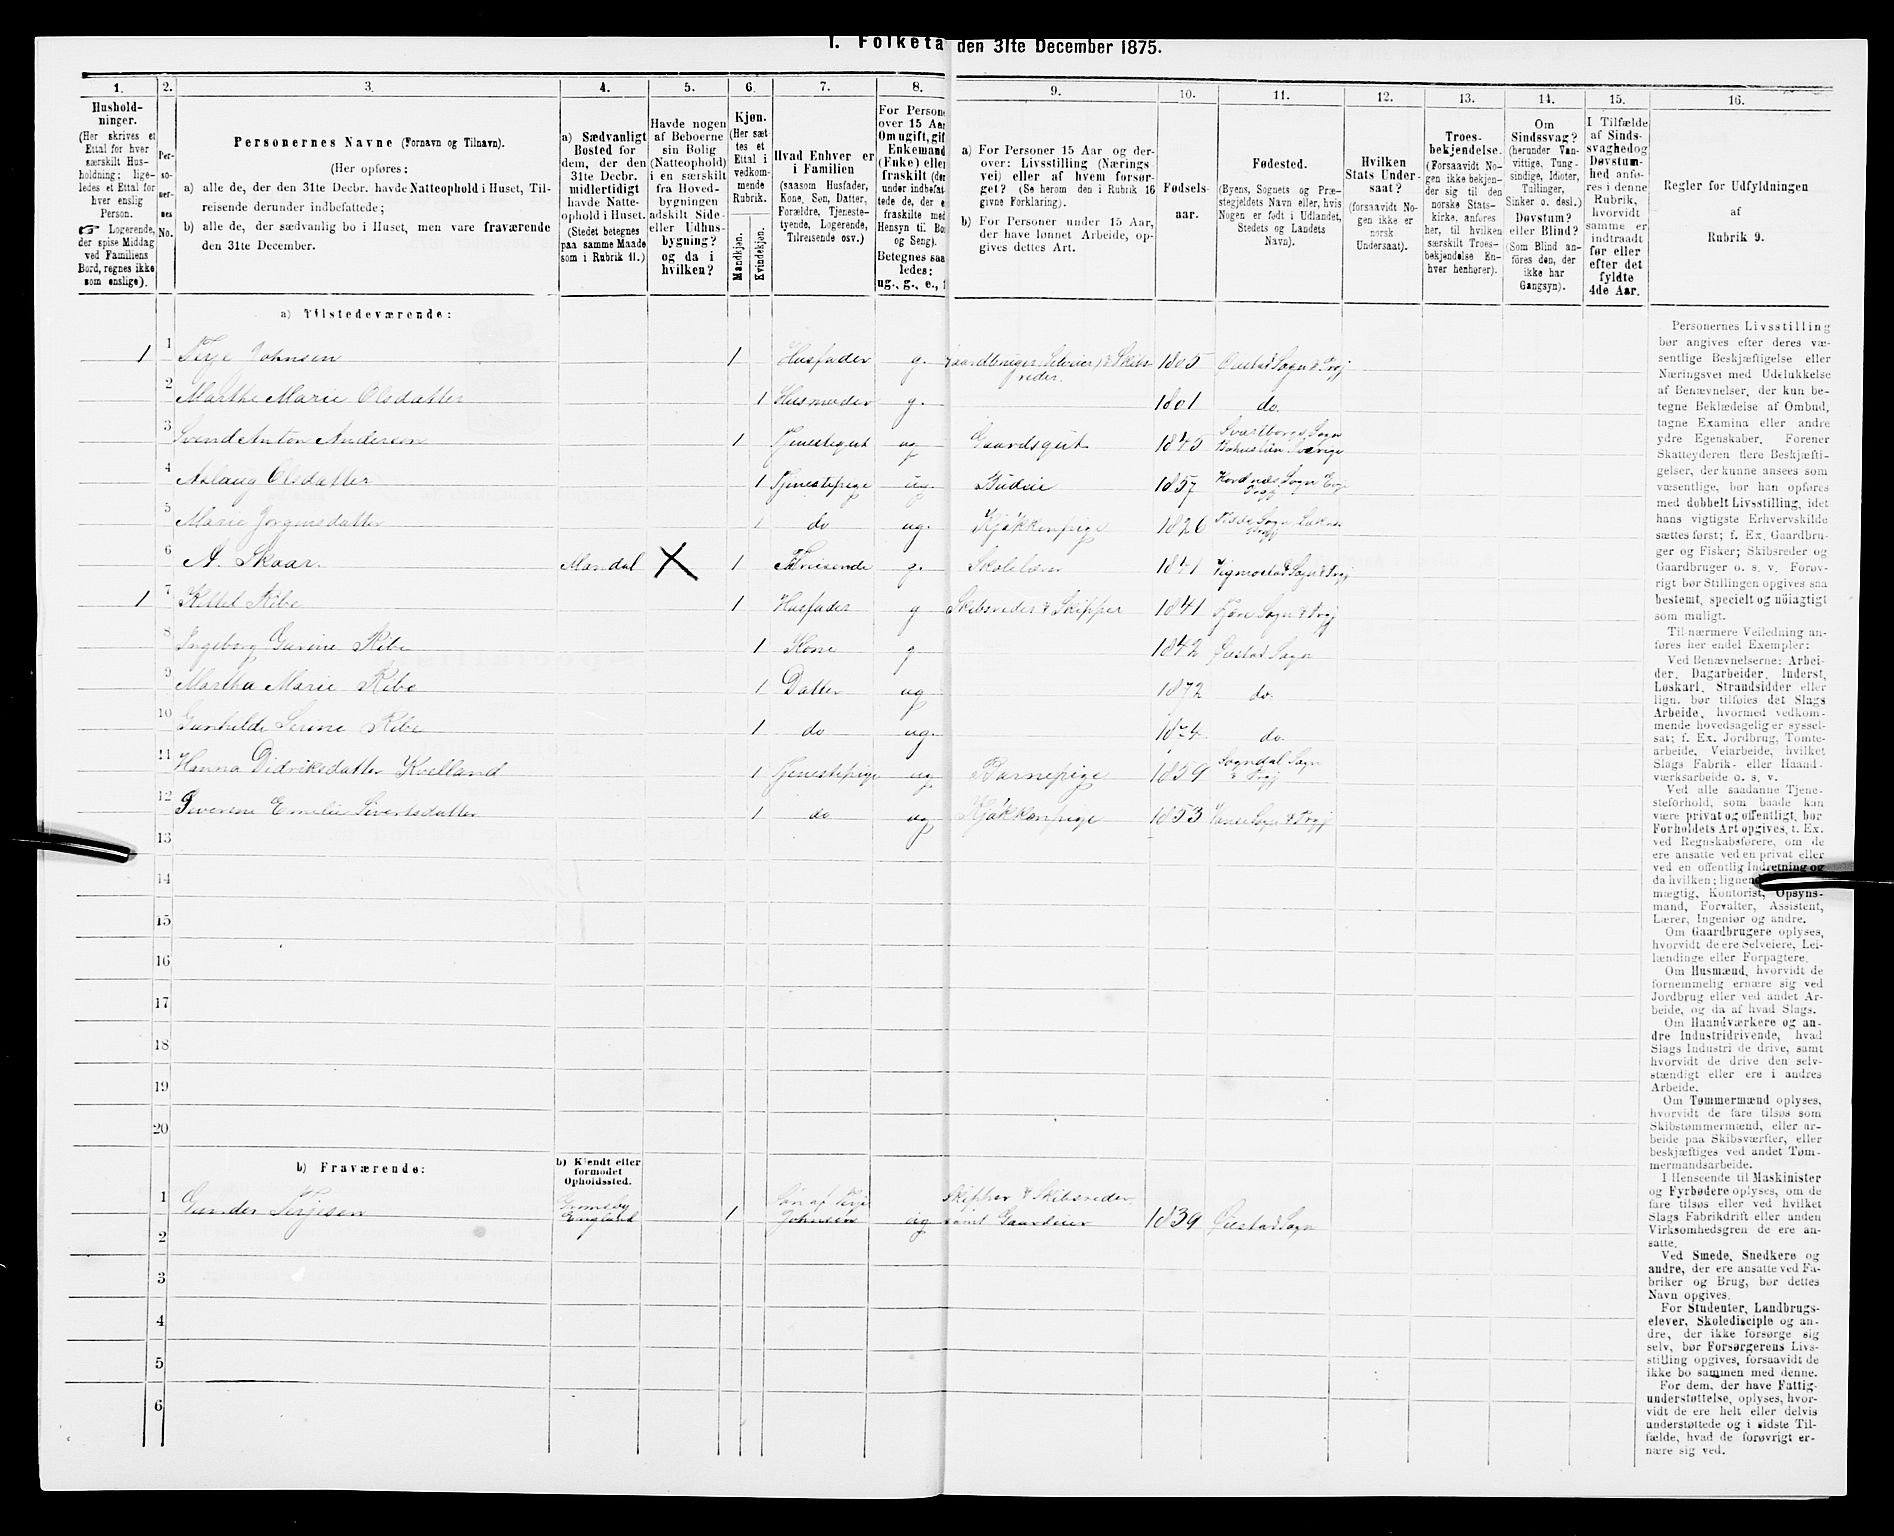 I. Folketa den 31te December 1875.
1. 2. 3. 4. 5. 6. 7. 8. 9. 10. 11. 12. 13. 14. 15. 16.
Hushold-
ninger.
(Her skrives et
Ettal for hver
særskilt Hus-
holdning; lige-
ledes et Ettal for
hver enslig
Person.
☞ Logerende,
der spise Middag
ved Familiens
Bord, regnes ikke
som enslige).
Per-
so-
ner-
nes
No.
Personernes Navne (Fornavn og Tilnavn).
(Her opføres:
a) alle de, der den 31te Decbr. havde Natteophold i Huset, Til-
reisende derunder indbefattede;
b) alle de, der sædvanlig bo i Huset, men vare fraværende
den 31te December.
a) Sædvanligt
Bosted for
dem, der den
31te Decbr.
midlertidigt
havde Natte-
ophold i Huset.
(Stedet betegnes
paa samme Maade
som i Rubrik 11.)
Havde nogen
af Beboerne
sin Bolig
(Natteophold)
i en særskilt
fra Hoved-
bygningen
adskilt Side-
eller Udhus-
bygning?
og da i
hvilken?
Kjøn.
(Her sæt-
tes et
Ettal i
vedkom-
mende
Rubrik.
Mandkjøn.
Kvindekjøn.
Hvad Enhver er
i Familien
(saasom Husfader,
Kone, Søn, Datter,
Forældre, Tjeneste-
tyende, Logerende,
Tilreisende osv.)
For Persone
over 15 Aar
Om ugift, gift
Enkemand
(Enke) eller
fraskilt (der
under indbefat-
tede de, der e
fraskilte med
Hensyn til Bo
og Seng).
Betegnes saa
ledes:
ug., g., e., f
a) For Personer 15 Aar og der-
over: Livsstilling (Nærings
vei) eller af hvem forsør-
get? (Se herom den i Rubrik 16
givne Forklaring).
b) For Personer under 15 Aar,
der have lønnet Arbeide, op-
gives dettes Art.
Fødsels-
aar.
Fødested.
(Byens, Sognets og Præ-
stegjeldets Navn eller, hvis
Nogen er født i Udlandet,
Stedets og Landets
Navn).
Hvilken
Stats Under-
saat?
(forsaavidt No-
gen ikke er
norsk
Undersaat).
Troes-
bekjendelse.
(Forsaavidt No-
gen ikke bekjen-
der sig til den
norske Stats-
kirke, anføres
her, til hvilken
særskilt Troes-
bekjendelse En-
hver henhører).
Om
Sindssvag?
(herunder Van-
vittige, Tung-
sindige, Idioter,
Tullinger,
Sinker o. desl.)
Døvstum?
eller Blind?
(Som Blind an-
føres den, der
ikke har
Gangsyn).
I Tilfælde
af Sinds-
svaghed og
Døvstum-
hed anfø-
res i denne
Rubrik,
hvorvidt
samme er
indtraadt
før eller
efter det
fyldte
4de Aar.
Regler for Udfyldningen
af
Rubrik 9.
a) Tilstedeværende:
1 1 Terje Johnsen 1 Husfader g. Gaardbruger (Selveier) & Skibs-
reder. 1805 Øiestad Sogn & Prgj
2 Marthe Marie Olsdatter 1 Husmoder g. 1801 do.
3 Svend Anton Anderson 1 Tjenestegut ug Gaardsgut 1845 Svartborg Sogn
Bohuslän Sverige
4 Aslaug Olsdatter 1 Tjenestepige ug. Budeie 1857 Sogn
5 Marie Jørgensdatter 1 do ug. Kjøkkenpige 1826 Sogn
6 A. Skaar. Mandal X 1 Tilreisende g. Skolelærer 1841 Vigmostad Sogn & Prgj
1 7 Kittel Ribe 1 Husfader g Skibsreder & Skipper 1841 Fjære Sogn & Prgj
8 Ingeborg Gurine Ribe 1 Kone g 1842 Øiestad Sogn
9 Martha Marie Ribe 1 Datter ug 1872 do.
10 Gunhilde Serine Ribe 1 do ug. 1874 do.
11 Hanna Didriksdatter Kvelland 1 Tjenestepige ug Barnepige 1859 Sogndal Sogn
& Prgj
12 Severene Emelie Sivertsdatter 1 do ug Kjøkkenpige 1853 Vanse Sogn & Prgj
13
14
15
16
17
18
19
20
b) Fraværende:
b) Kjendt eller
formodet
Opholdssted.
1 Gunder Terjesen Grimsby
England 1 Søn af Terje
Johnsen ug Skipper & Skibsreder
samt Gaardeier 1839 Øiestad Sogn
2
3
4
5
6
Personernes Livsstilling
bør angives efter deres væ-
sentlige Beskjæftigelse eller
Næringsvei med Udelukkelse
af Benævnelser, der kun be-
tegne Beklædelse af Ombud,
tagne Examina eller andre
ydre Egenskaber. Forener
Skatteyderen flere Beskjæfti-
gelser, der kunne ansees som
væsentlige, bør han opføres
med dobbelt Livsstilling, idet
hans vigtigste Erhvervskilde
sættes først; f. Ex. Gaardbru-
ger og Fisker; Skibsreder og
Gaardbruger o. s. v. Forøv-
rigt bør Stillingen opgives saa
bestemt, specielt og nöiagtigt
som muligt.
Til nærmere Veiledning an-
føres her endel Exempler:
Ved Benævnelserne: Arbei-
der, Dagarbeider, Inderst,
Løskarl, Strandsidder eller
lign. bør tilføies det Slags
Arbeide, hvormed vedkom-
mende hovedsagelig er syssel-
sat; f. Ex. Jordbrug, Tømte-
arbeide, Veiarbeide, hvilket
Slags Fabrik- eller Haand-
værksarbeide o. s. v.
Ved alle saadanne Tjene-
steforhold, som baade kan
være privat og offentligt, bør
Forholdets Art opgives, t. Ex.
ved Regnskabsførere, om de
ere ansatte ved en privat eller
ved en offentlig Indretning og
da hvilken; lignen
mægtig, Kontorist, Opsyns-
mand, Forvalter, Assistent,
Lærer, Ingeniør og andre.
Om Gaardbrugere oplyses,
hvorvidt de ere Selveiere, Lei-
lændinge eller Forpagtere.
Om Husmænd, hvorvidt de
fornemmelig ernære sig ved
Jordbrug eller ved andet Ar-
beide, og da af hvad Slags.
Om Haandværkere og an-
dre Industridrivende, hvad
Slags Industri de drive, samt
hvorvidt de drive den selv-
stændigt eller ere i andres
Arbeide.
Om Tømmermænd oplyses,
hvorvidt de fare tilsøs som
Skibstømmermænd, eller ar-
beide paa Skibsværfter, eller
beskjæftiges ved andet Tøm-
mermandsarbeide.
I Henseende til Maskinister
og Fyrbødere oplyses, om de
fare tilsøs eller ved hvilket
Slags Fabrikdrift eller anden
Virksomhedsgren de ere an-
satte.
Ved Smede, Snedkere og
andre, der ere ansatte ved Fa-
briker og Brug, bør dettes
Navn opgives.
For Studenter, Landbrugs-
elever, Skoledisciple og an-
dre, der ikke forsørge sig
selv, bør Forsørgerens Livs-
stilling opgives, forsaavidt de
ikke bo sammen med denne.
For dem, der have Fattig-
understøttelse, oplyses, hvor-
vidt de ere helt eller delvis
understøttede og i sidste Til-
fælde, hvad de forøvrigt er-
nære sig ved.